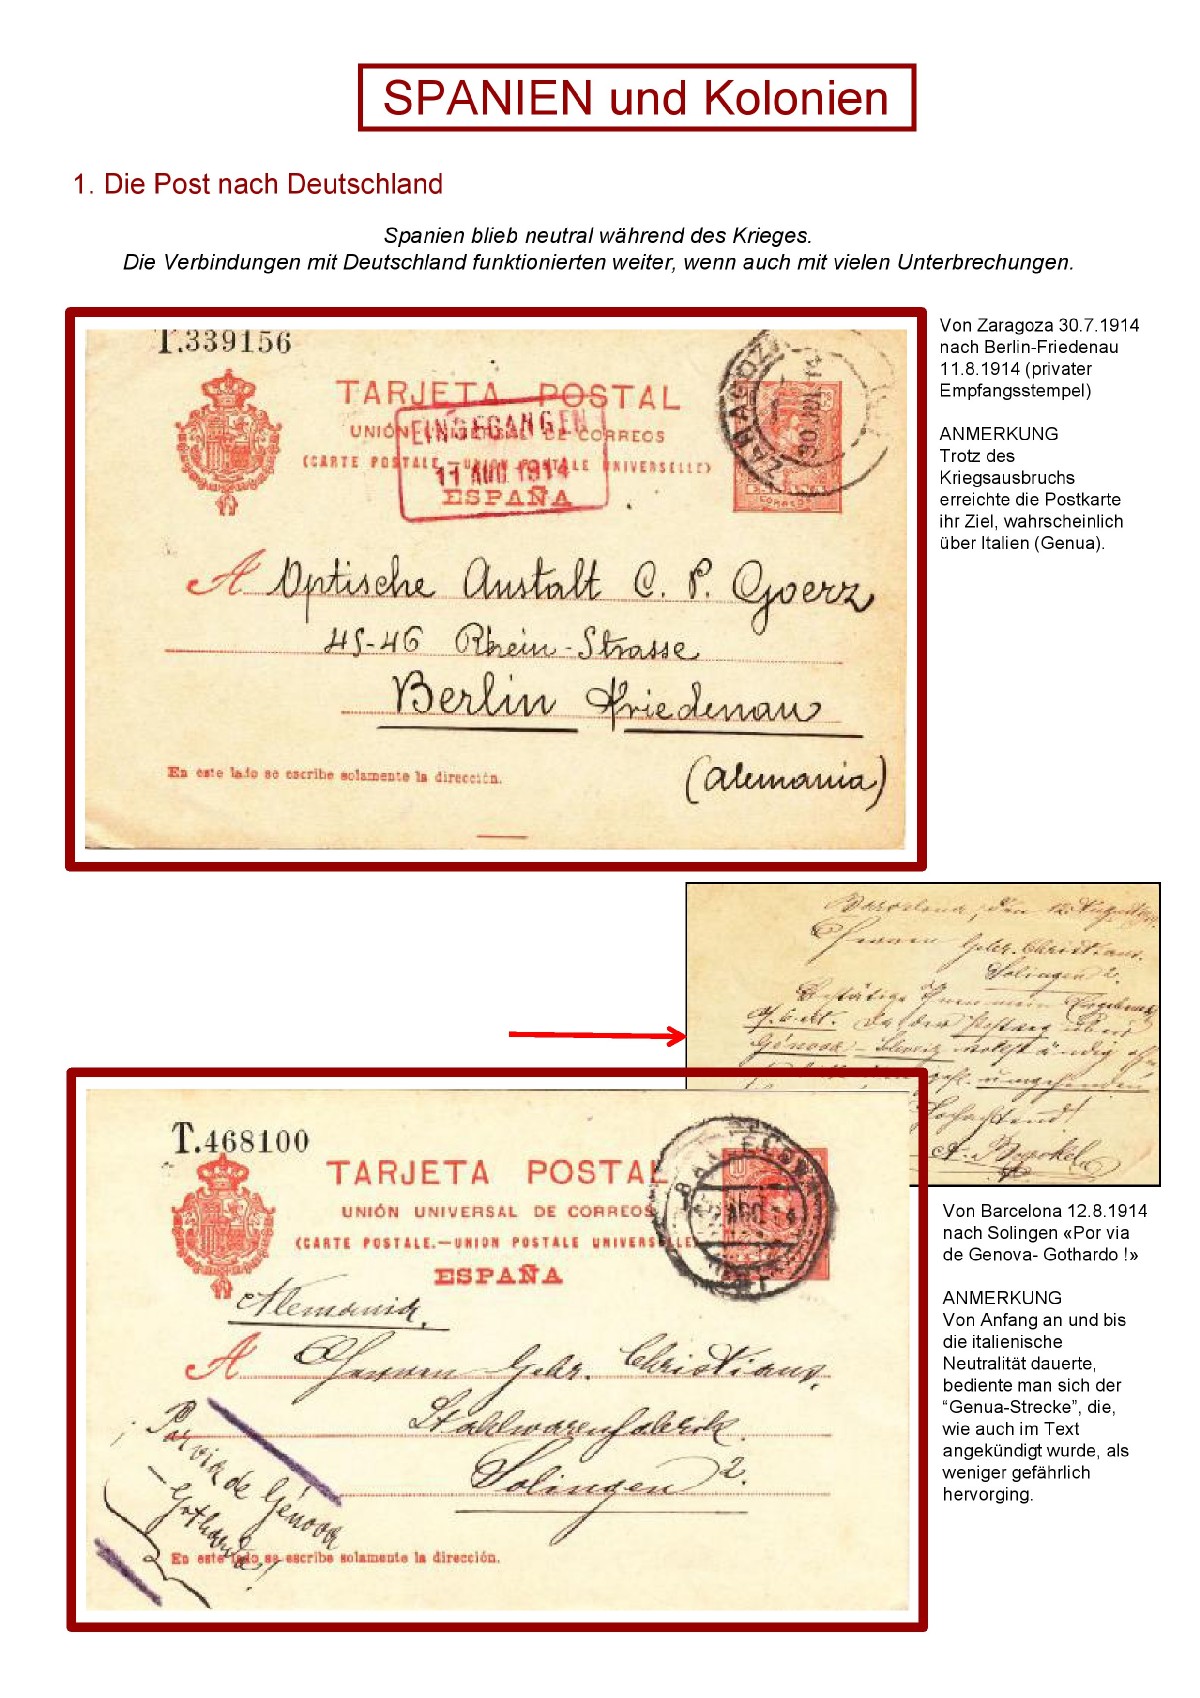 SPANIEN und Kolonien
1. Die Post nach Deutschland
Spanien blieb neutral während des Krieges.
Die Verbindungen mit Deutschland funktionierten weiter, wenn auch mit vielen Unterbrechungen.
T.339156
TARJETA POSTAL
UNIÓN UNIVERSAL DE CORREOS
(CARTE POSTALE.—UNION POSTALE UNIVERSELLE)
ESPAÑA
EINGEGANGEN
11 AUG. 1914
ZARAGOZA
30 JUL 14
CORREOS
A Optische Anstalt C. P. Goerz
45-46 Rhein-Strasse
Berlin Friedenau
(Alemania)
En este lado se escribe solamente la dirección.
Von Zaragoza 30.7.1914
nach Berlin-Friedenau
11.8.1914 (privater
Empfangsstempel)
ANMERKUNG
Trotz des
Kriegsausbruchs
erreichte die Postkarte
ihr Ziel, wahrscheinlich
über Italien (Genua).
Barcelona, den 12. August
Herren Gebr. Christians.
Solingen 2.
Bestätige Ihnen mein Ergebenes
Da der Postweg über
Génova - Schweiz vollständig
umgehenden
Hochachtend!
T.468100
TARJETA POSTAL
UNIÓN UNIVERSAL DE CORREOS
(CARTE POSTALE.—UNION POSTALE UNIVERSELLE)
ESPAÑA
BARCELONA
Alemania.
A Herren Gebr. Christians.
Stahlwarenfabrik.
Solingen 2.
Por via de Génova
Gothardo!
En este lado se escribe solamente la dirección.
Von Barcelona 12.8.1914
nach Solingen «Por via
de Genova- Gothardo !»
ANMERKUNG
Von Anfang an und bis
die italienische
Neutralität dauerte,
bediente man sich der
“Genua-Strecke”, die,
wie auch im Text
angekündigt wurde, als
weniger gefährlich
hervorging.